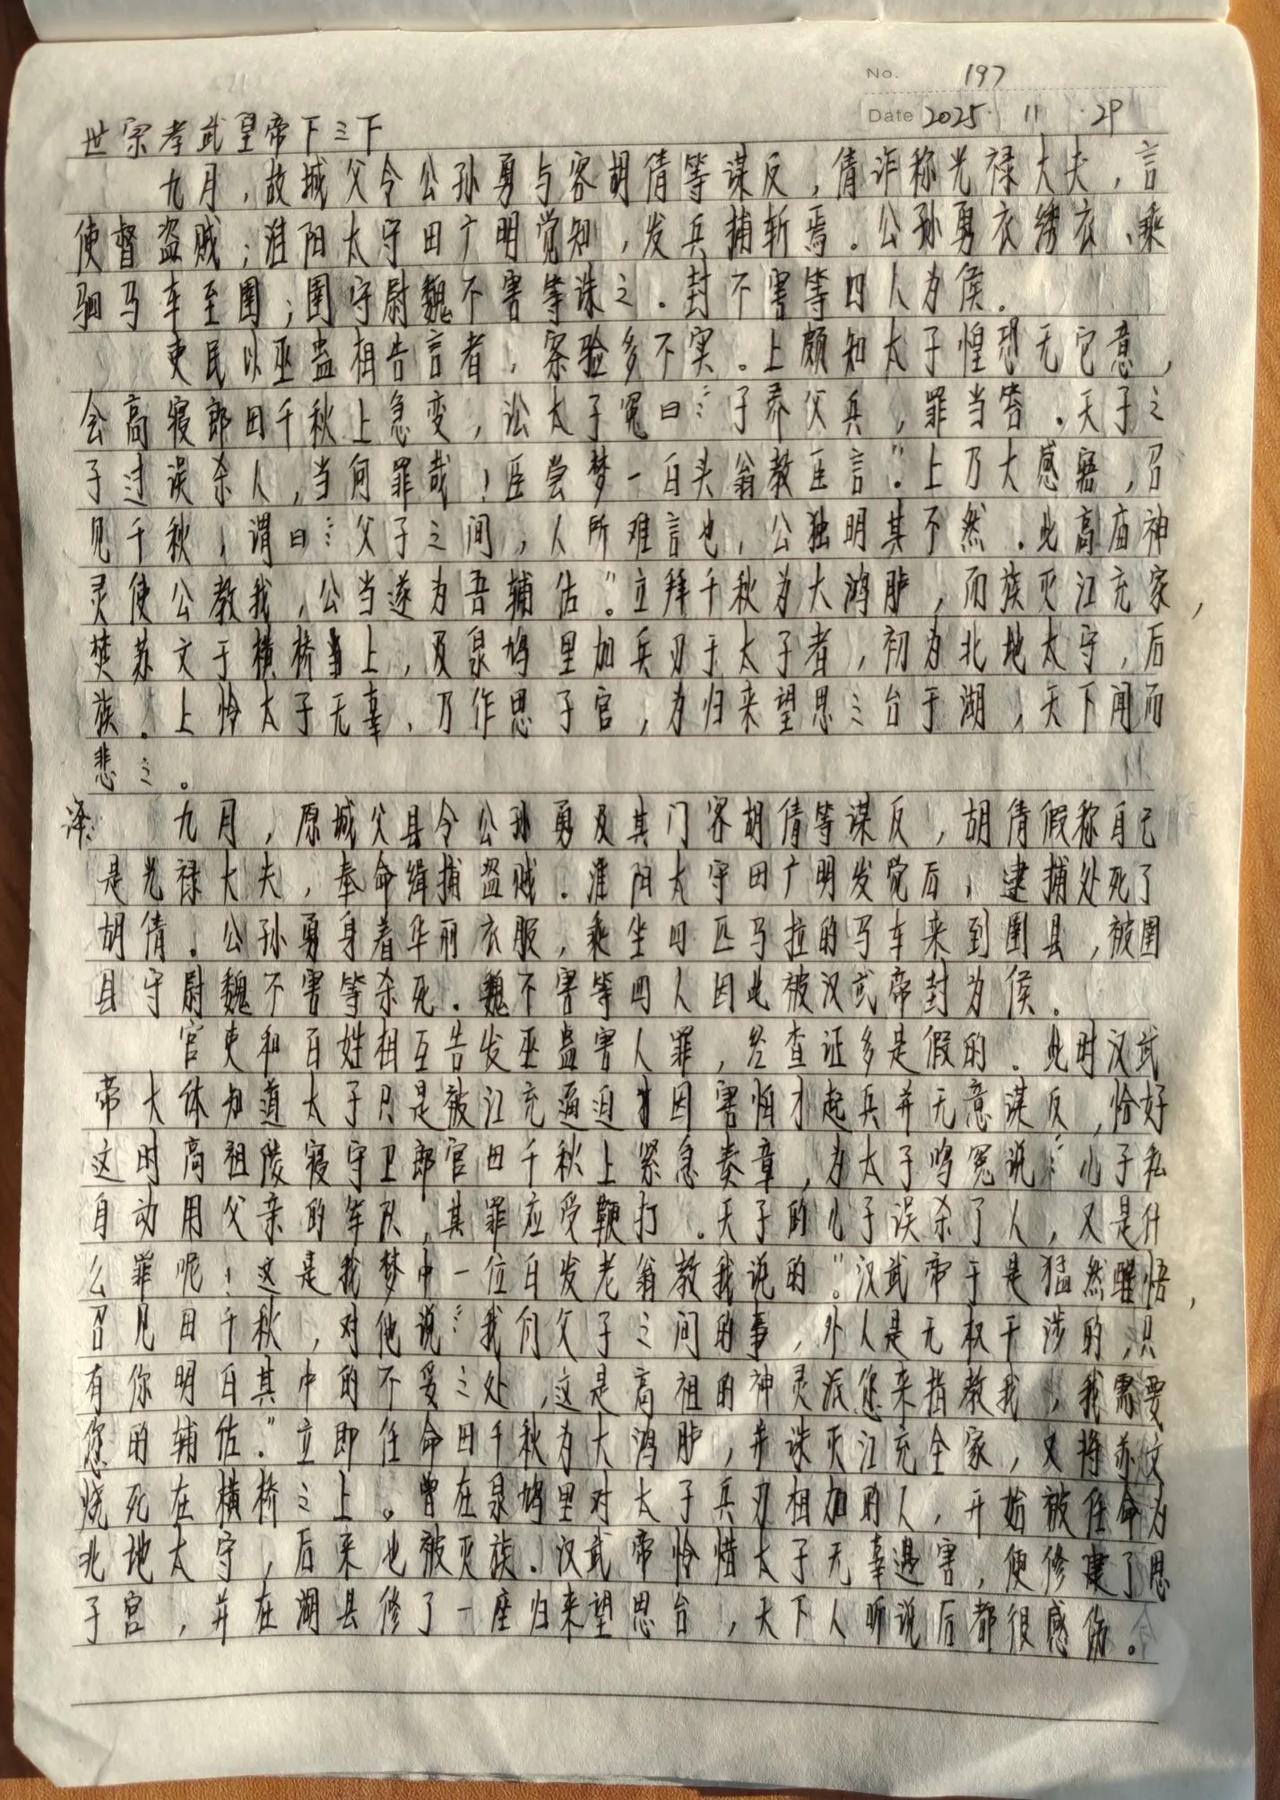 No. 197
Date 2025 11 29
世宗孝武皇帝下之下
九月，故城父令公孙勇与客胡倩等谋反，倩诈称光禄大夫，言
使督盗贼；淮阳太守田广明觉知，发兵捕斩焉。公孙勇衣绣衣、乘
驷马车至圉；圉守尉魏不害等诛之。封不害等四人为侯。
吏民以巫蛊相告言者，案验多不实。上颇知太子惶恐无它意，
会高寝郎田千秋上急变，讼太子冤曰：“子弄父兵，罪当笞。天子之
子过误杀人，当何罪哉！臣尝梦一白头翁教臣言。”上乃大感寤，召
见千秋，谓曰：“父子之间，人所难言也，公独明其不然。此高庙神
灵使公教我，公当遂为吾辅佐。”立拜千秋为大鸿胪，而族灭江充家，
焚苏文于横桥上，及泉鸠里加兵刃于太子者，初为北地太守，后
族。上怜太子无辜，乃作思子宫，为归来望思之台于湖，天下闻而
悲之。
译：九月，原城父县令公孙勇及其门客胡倩等谋反，胡倩假称自己
是光禄大夫，奉命缉捕盗贼。淮阳太守田广明发觉后，逮捕处死了
胡倩。公孙勇身着华丽衣服，乘坐四匹马拉的马车来到圉县，被圉
县守尉魏不害等杀死。魏不害等四人因此被汉武帝封为侯。
官吏和百姓相互告发巫蛊害人罪，经查证多是假的。此时汉武
帝大体知道太子只是被江充逼迫因害怕才起兵并无意谋反，恰好
这时高祖陵寝守卫郎官田千秋上紧急奏章，为太子鸣冤说：“儿子私
自动用父亲的军队，其罪应受鞭打。天子的儿子误杀了人，又是什
么罪呢！这是我梦中一位白发老翁教我说的。”汉武帝于是猛然醒悟，
召见田千秋，对他说：“我们父子之间的事，外人是无权干涉的，只
有你明白其中的不妥之处，这是高祖的神灵派您来指教我，我需要
您的辅佐。”立即任命田千秋为大鸿胪，并诛灭江充全家，又将苏文
烧死在横桥之上。曾在泉鸠里对太子兵刃相加的人，开始被任命为
北地太守，后来也被灭族。汉武帝怜惜太子无辜遇害，便修建了思
子宫，并在湖县修了一座归来望思台，天下人听说后都很感伤。